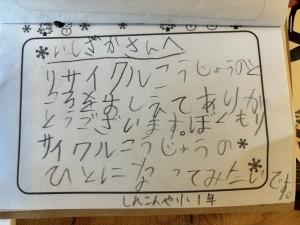 いしざかさんへ
リサイクルこうじょうのと
ころをおしえてありが
とうございます。ぼくもリ
サイクルこうじょうの
ひとになってみたい
です。
しんこんやリい1年